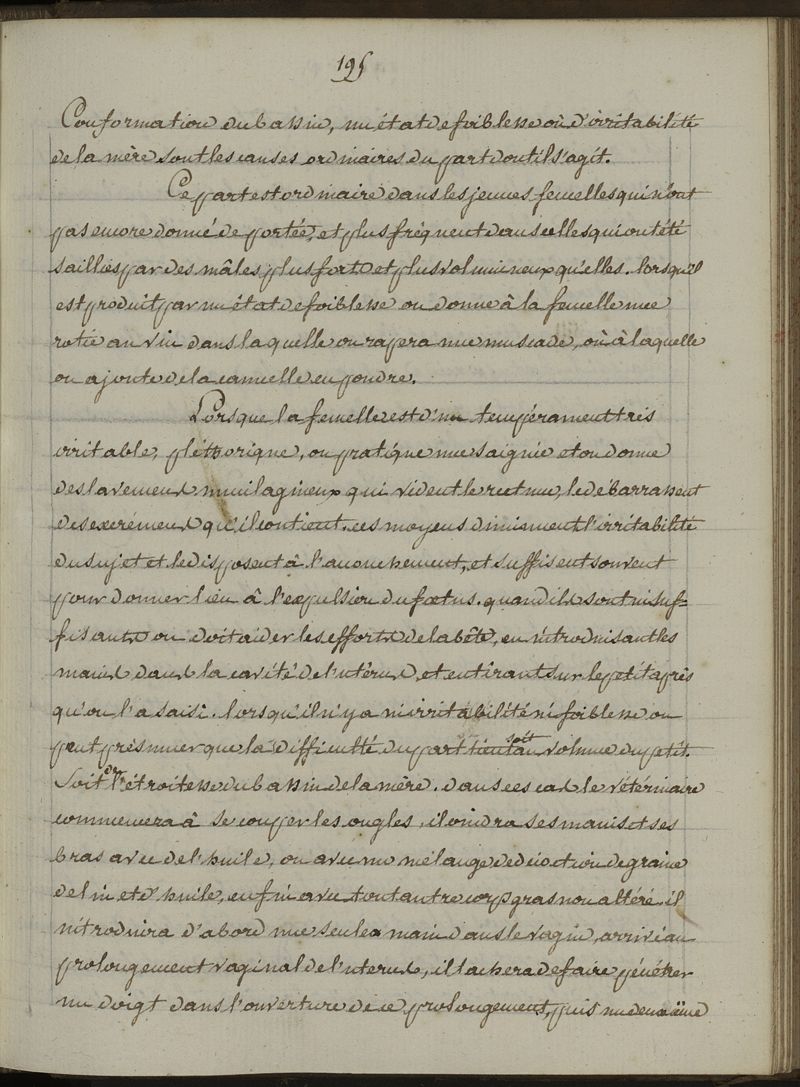 195
Conformation du bassin, un état de foiblesse où d'irritabilité
de la mère sont les causes ordinaires du part dont il s'agit.
Ce part est ordinaire dans les jeunes femelles qui n'ont
pas encore donné de portée, et plus fréquent dans celles qui ont été
saillies par des mâles plus forts et plus volumineux qu'elles. lorsqu'il
est produit par un état de foiblesse on donne à la femelle une
rotie au vin dans laquelle on rapera une muscade, où à laquelle
on ajoute de la cannelle en poudre.
Lorsque la femelle est d'un tempérament très
irritable, pléthorique, on pratique une saignie et on donne
des lavemens mucilagineux qui vident le rectum, le débarrassent
des excrémens qu'il contient. ces moyens diminuent l'irritabilité
du sujet et le disposent à l'accouchement, et suffisent souvent
pour donner lieu à l'expulsion du fœtus. quand ils sont insuf=
fisants on doit aider les efforts de la bête, en introduisant les
mains dans la cavité de l'utérus, et en tirant sur le petit après
qu'on l'a saisi. lorsqu'il n'y a ni irritabilité ni foiblesse on
peut présumer que la difficulté du part tient soit au volume du petit.
Soit de l'étroitesse du bassin de la mère. dans ces cas le vétérinaire
commencera à se couper les ongles, il oindra ses mains et ses
bras avec de l'huile, ou avec un mélange de décoction de graine
de lin et d'huile, enfin avec tout autre corps gras non altéré. il
introduira d'abord une seule main dans le vagin, arrivé au
prolongement vaginal de l'uterus, il tachera de faire pénétrer
un doigt dans l'ouverture de ce prolongement, puis un deuxième